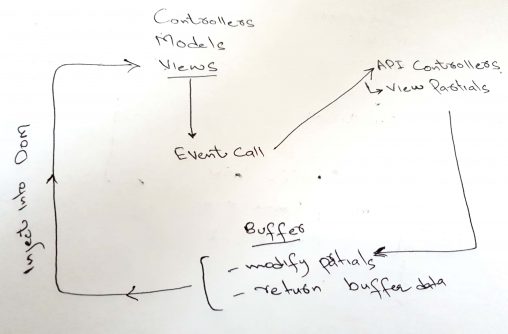 Controllers
Models
Views
Event Call
API Controllers
↳ View Partials
Buffer
- modify partials
- return buffer data
Inject Into DOM